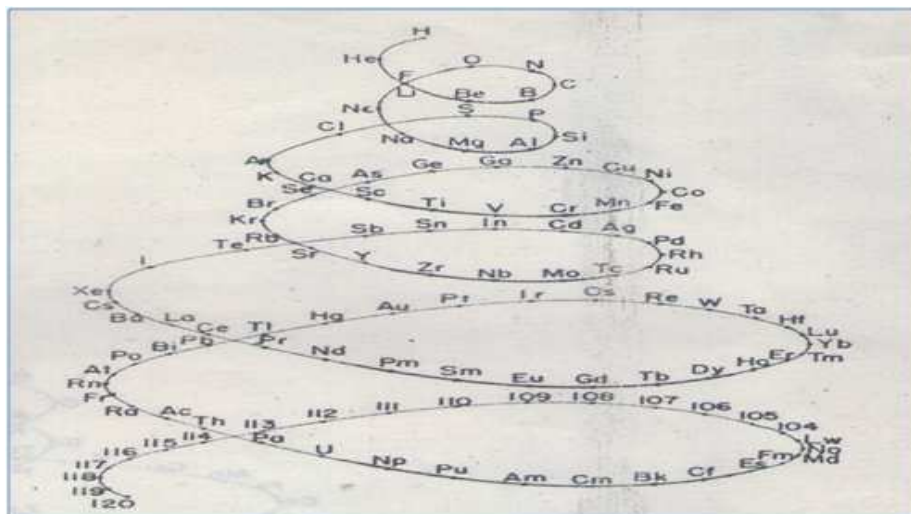 H
He
O N
F C
Li Be B
Ne S P
Cl Na Mg Al Si
A
K Ca As Ge Ga Zn Cu Ni
Se Sc Co
Br Ti V Cr Mn Fe
Kr
Rb Sb Sn In Cd Ag Pd
Te Sr Y Rh
I Zr Nb Mo Tc Ru
Xe
Cs Au Pt Ir Os Re W Ta
Ba La Ce Tl Hg Hf
Pb Pr Lu
Bi Yb
Po Nd Pm Sm Eu Gd Tb Dy Ho Er Tm
At
Rn
Fr
Ra Ac Th 113 112 111 110 109 108 107 106 105 104
114 Pa Lw
115 No
116 U Np Pu Am Cm Bk Cf Es Fm Md
117
118
119
120